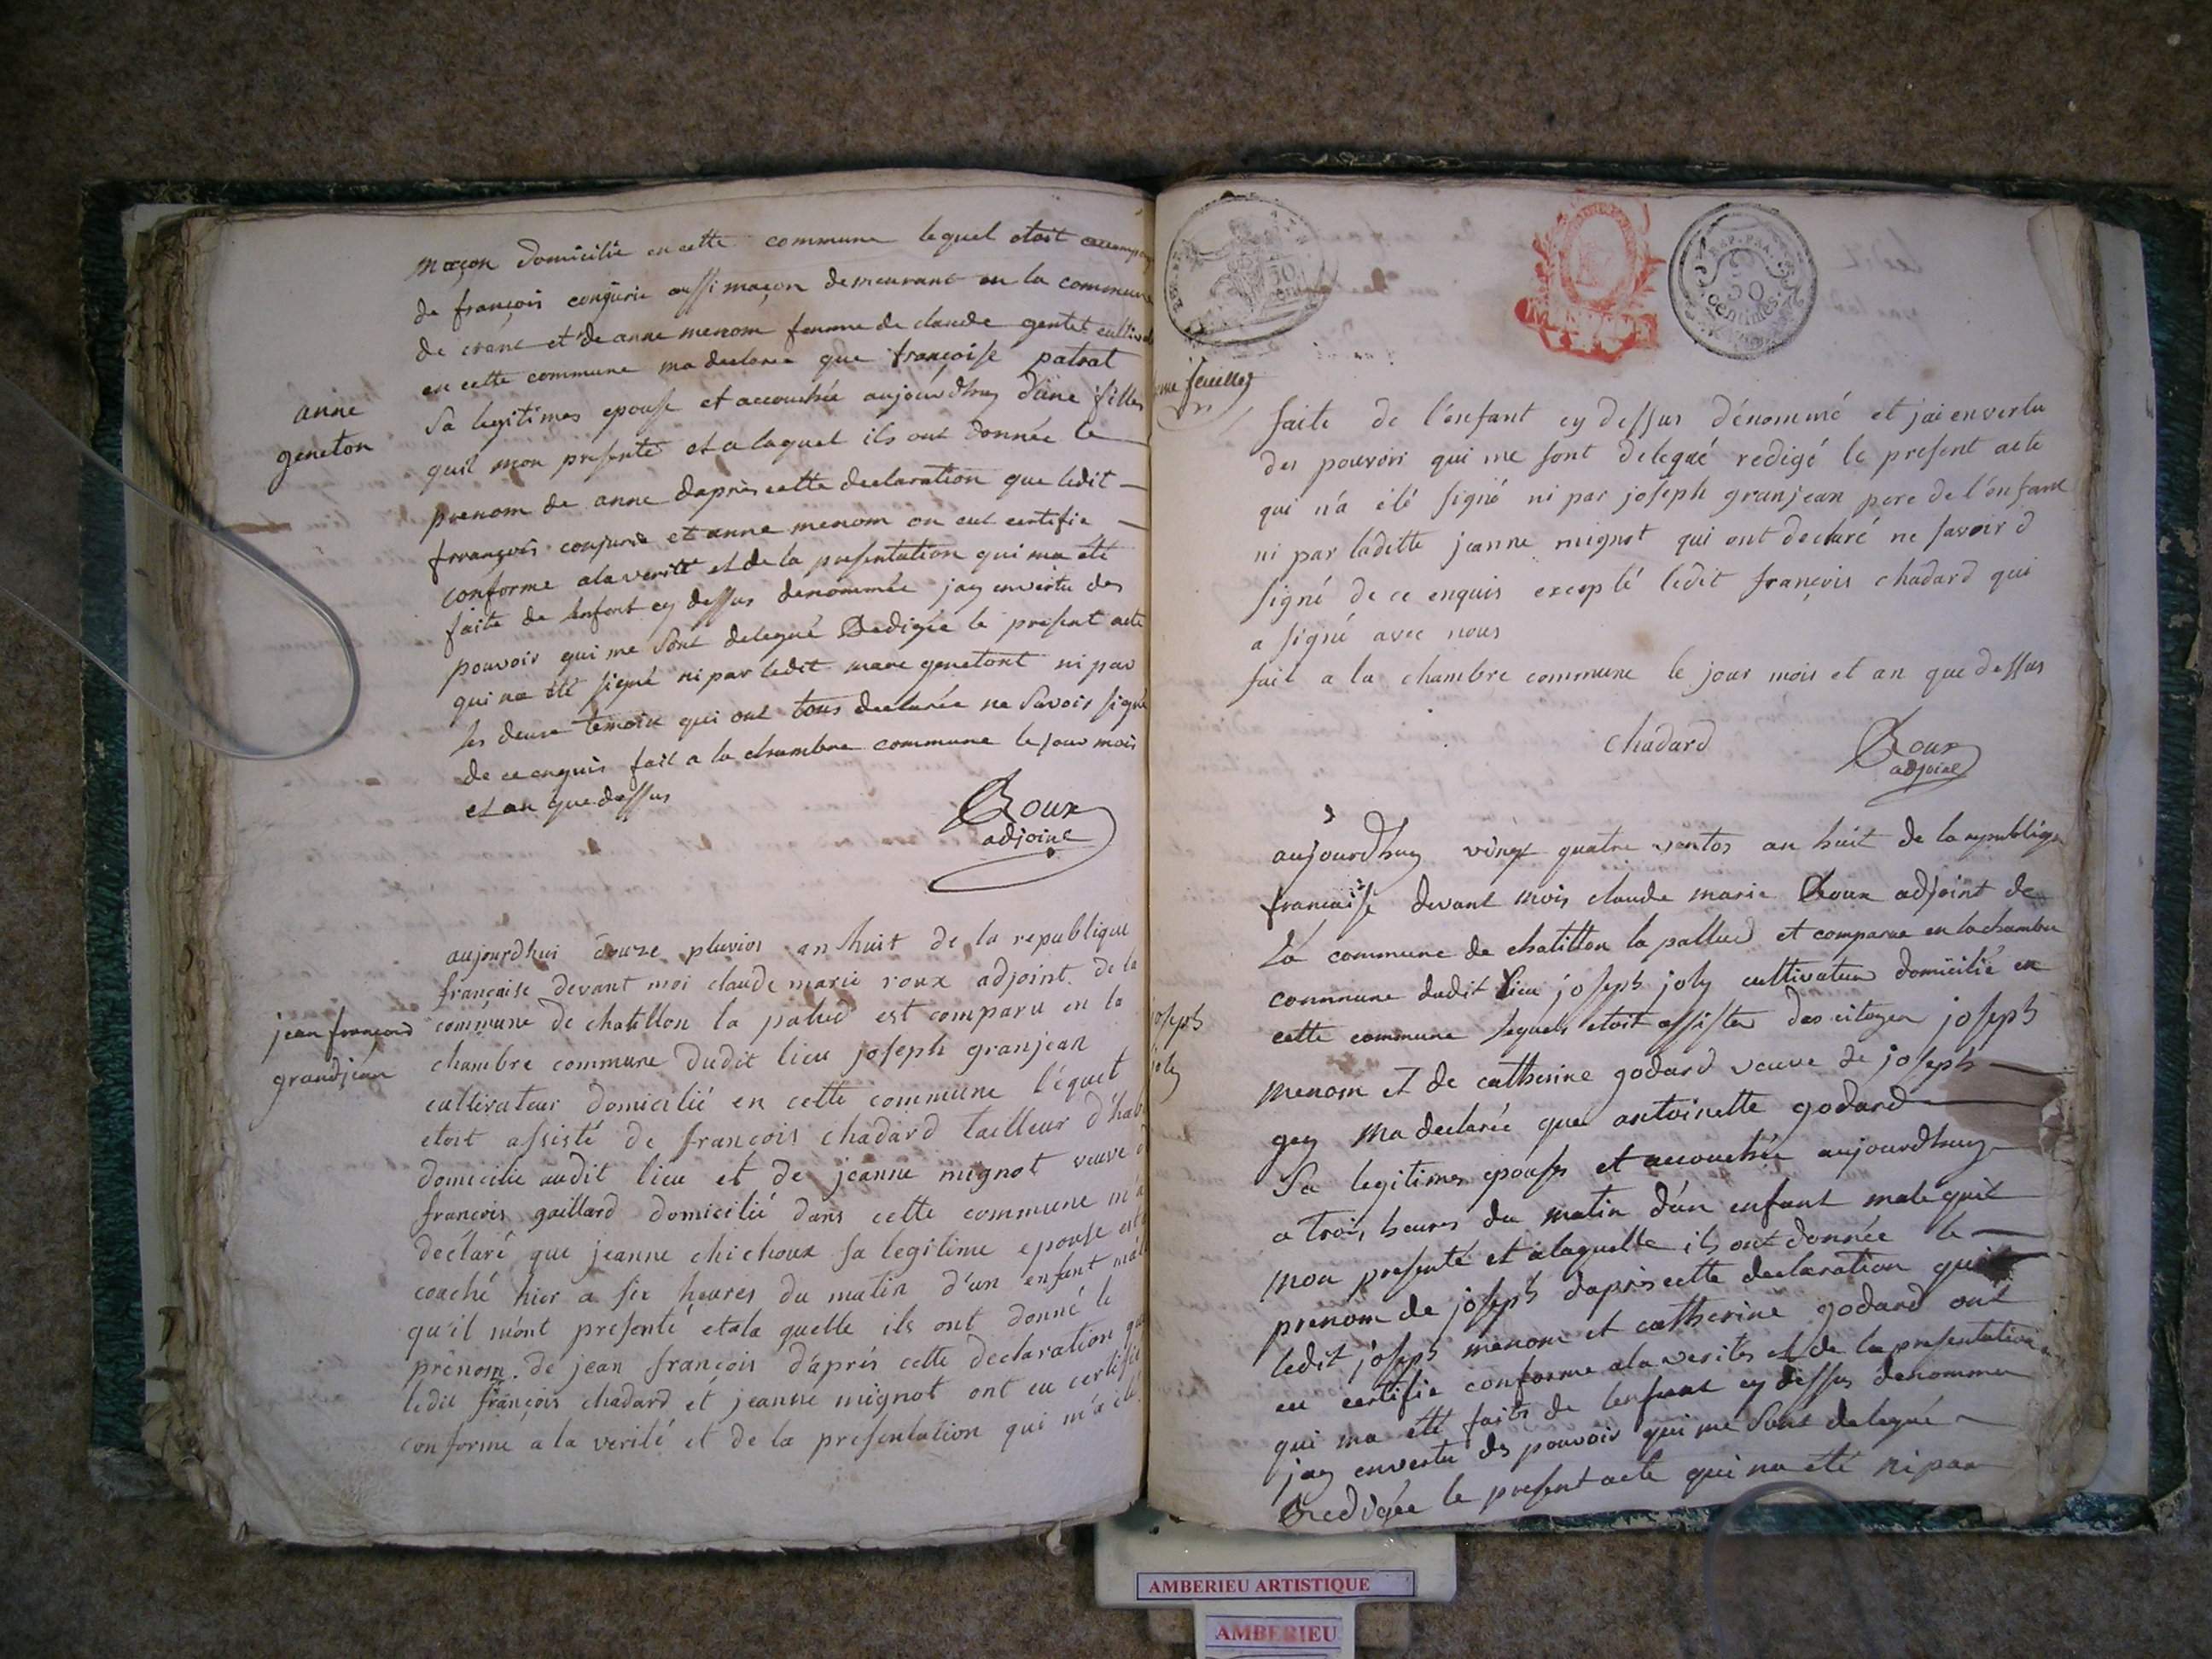 maçon domicilié en cette commune lequel etoit accomp
de françois conjurie aussi maçon demeurant en la commune
de crans et de anne menom femme de claude gentet cultiva
en cette commune ma declaree que françoise patrat
anne
geneton
Sa legitimes epouse et accouchée aujourdhuy d'une filles
quil mon presenté et a laquel ils ont donnée le
prenom de anne daprès cette declaration que ledit
françois conjurie et anne menom on eut certifie
conforme a la verité et de la presentation qui ma été
faite de lenfent cy dessus denommée jay en vertu des
pouvoir qui me Sont delegué Redigée le present acte
qui na été signé ni par ledit marc genetont ni par
les deux temoin qui ont tous declarée ne Savoir signé
de ce enquis fait a la chambre commune le jour mois
et an que dessus
Roux
adjoint
aujourdhui douze pluvios an huit de la republique
française devant moi claude marie roux adjoint de la
jean françois
grandjean
commune de chatillon la palud est comparu en la
chambre commune dudit lieu joseph granjean
cultivateur domicilié en cette commune léquel
etoit assisté de françois chadard tailleur d'hab
domicilie audit lieu et de jeanne mignot veuve d
francois gaillard domicilié dans cette commune m'a
declaré que jeanne chichoux sa legitime epouse est
couché hier a six heures du matin d'un enfant mâl
qu'il m'ont presenté et a la quelle ils ont donné le
prenom de jean françois d'aprés cette declaration que
ledit françois chadard et jeanne mignot ont eu certifié
conforme a la verité et de la presentation qui m'a été
50
50
centimes
feuillet
faite de l'enfant cy dessus dénommé et jai en vertu
des pouvoirs qui me sont delegué redigé le present acte
qui n'a été signé ni par joseph granjean pere de l'enfant
ni par ladette jeanne mignot qui ont declaré ne savoir d
signé de ce enquis excepté ledit françois chadard qui
a signé avec nous
fait a la chambre commune le jour mois et an que dessus
chadard
Roux
adjoint
aujourdhuy vingt quatre ventos an huit de la republique
francaise devant mois claude marie Roux adjoint de
La commune de chatillon la pallud et comparue en la chambre
commune dudit lieu joseph joly cultivateur domicilié en
joseph
joly
cette commune lequels etoit assister des citoyen joseph
menom et de catherine godard veuve de joseph
gey ma declarée que antoinette godard
Sa legitimes epouse et accouchée aujourdhuy
a trois heures du matin d'un enfant male quil
mon presenté et a laquelle ils ont donnée le
prenom de joseph daprès cette declaration que
ledit joseph menom et catherine godard ont
eu certifie conforme a la verités et de la presentation
qui ma été faits de lenfent cy dessus denommer
jay en vertu des pouvoir qui me Sont delegué
Redigée le present acte qui na été ni par
AMBERIEU ARTISTIQUE
AMBERIEU